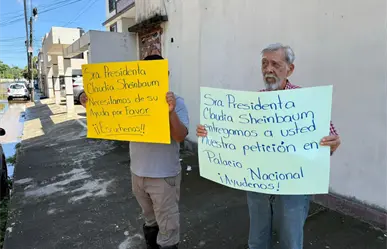 Sra. Presidenta
Claudia Sheinbaum
Necesitamos de su
Ayuda por Favor
¡¡Escuchenos!!
Sra. Presidenta
Claudia Sheinbaum
entregamos a usted
nuestra petición en
Palacio
Nacional
¡Ayudenos!